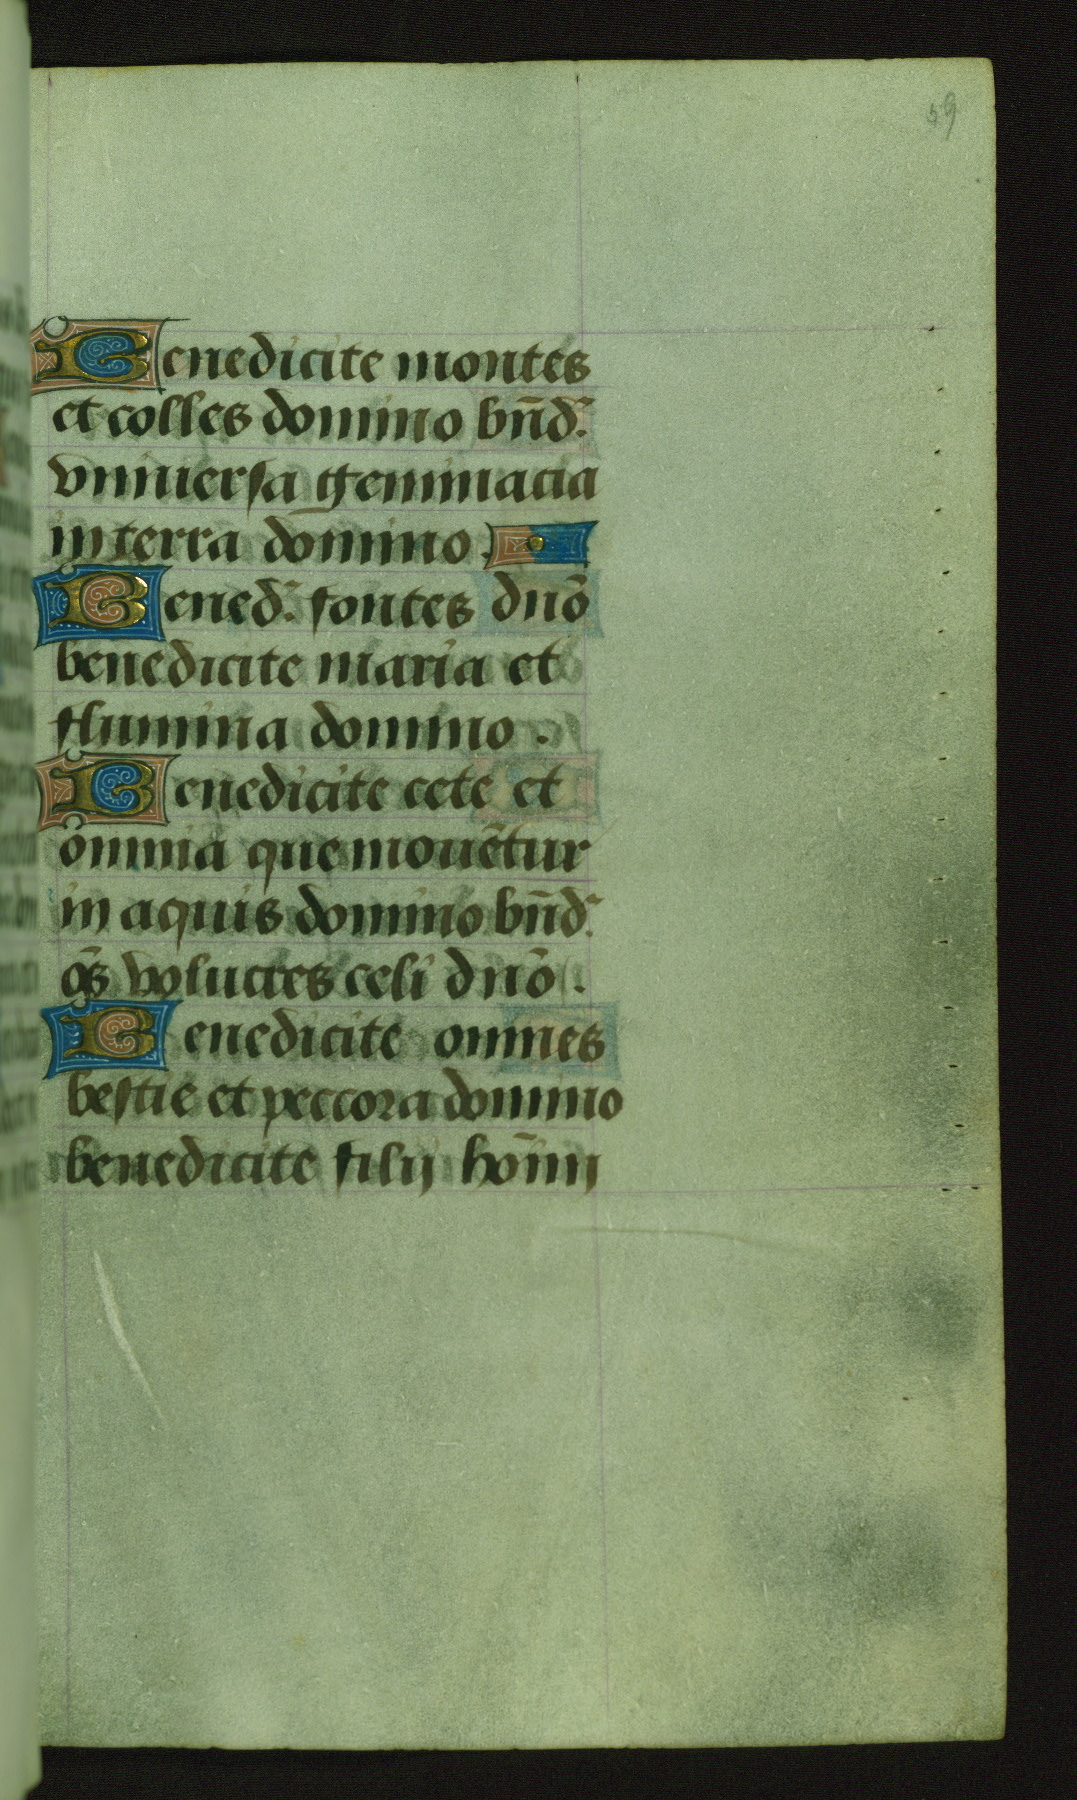 59
Benedicite montes
et colles domino bn̄d.
vniuersa geminacia
in terra domino.
Bened. fontes dn̄o
benedicite maria et
flumina domino.
Benedicite cete et
omnia que mouētur
in aquis domino bn̄d.
om̄s volucres celi dn̄o.
Benedicite omnes
bestie et peccora domino
benedicite filij ho̅inj